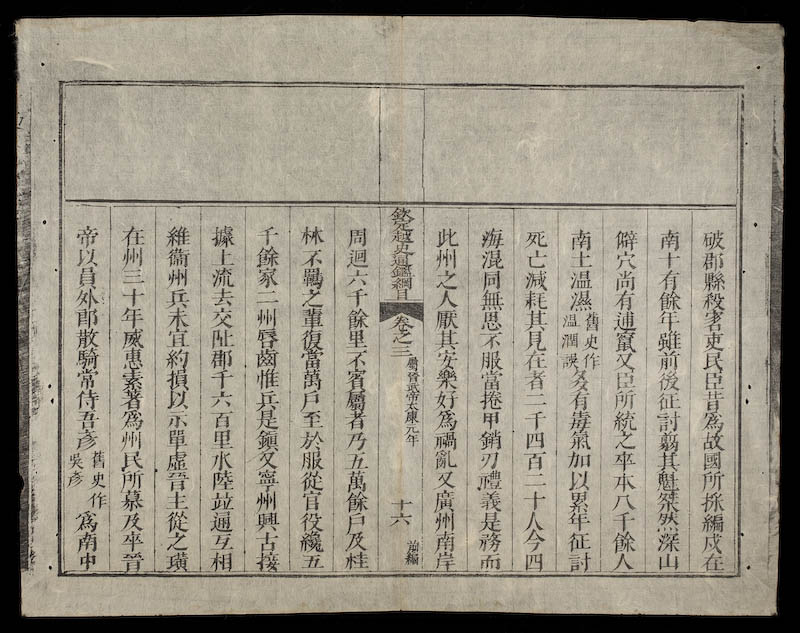 破郡縣殺害吏民臣昔爲故國所採編戍在
南十有餘年雖前後征討翦其魁桀然深山
僻穴尚有逋竄又臣所統之卒本八千餘人
南土温濕舊史作温潤誤多有毒氣加以累年征討
死亡減耗其見在者二千四百二十人今四
海混同無思不服當捲甲銷刃禮義是務而
此州之人厭其安樂好爲禍亂又廣州南岸
欽定越史通鑑綱目 卷之三 屬晉武帝太康元年 十六 前編
周迴六千餘里不賓屬者乃五萬餘戶及桂
林不羈之輩復當萬戶至於服從官役纔五
千餘家二州唇齒惟兵是鎮又寧州興古接
據上流去交阯郡千六百里水陸竝通互相
維衞州兵未宜約損以示單虛晉主從之璜
在州三十年威惠素著爲州民所慕及卒晉
帝以員外郎散騎常侍吾彦舊史作吳彦爲南中